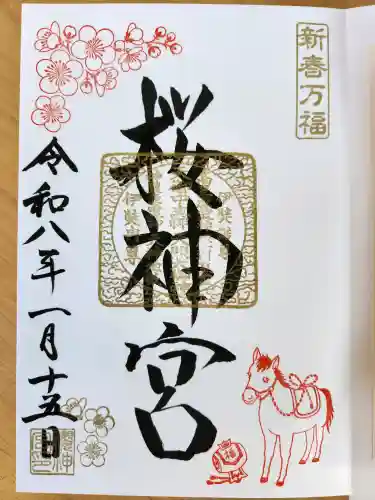 新春万福
桜神宮
令和八年一月十五日
福